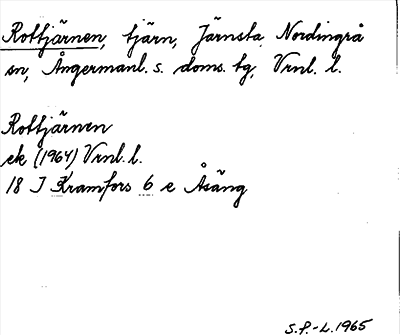 Rottjärnen, tjärn, Järnsta Nordingrå
sn, Ångermanl. s. doms. tg, Vrnl. l.
Rottjärnen
ek (1964) Vrnl. l.
18 I Kramfors 6 e Åsäng
S.P.-L. 1965